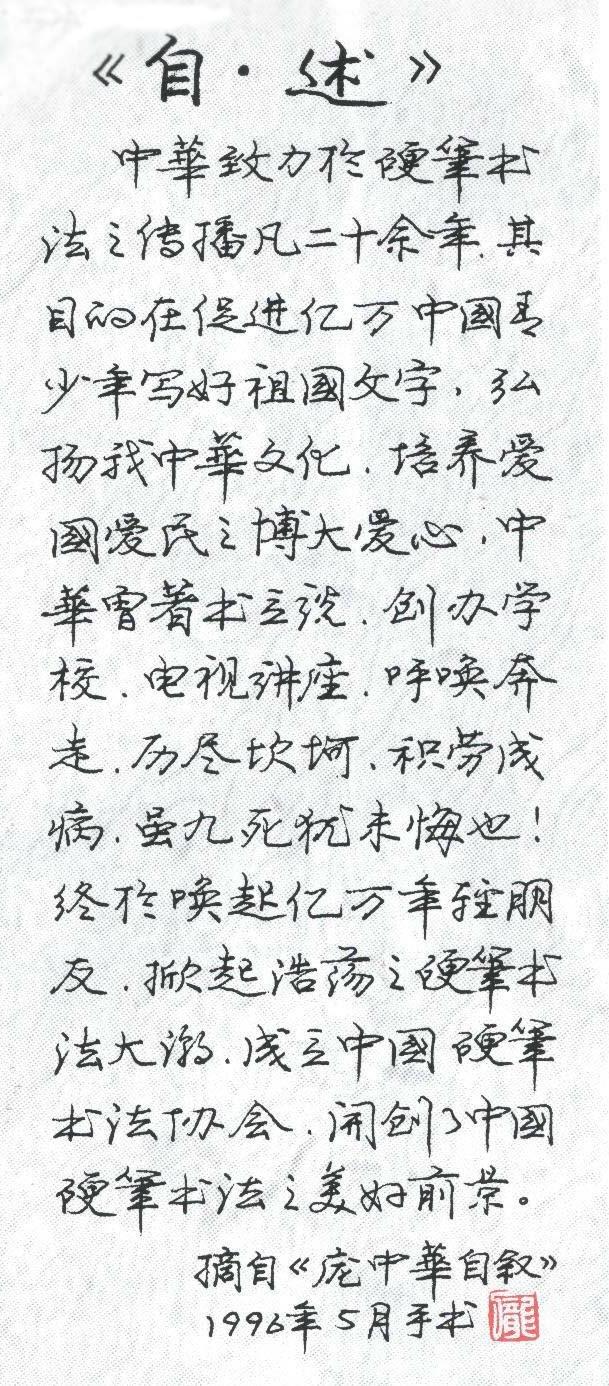 《自·述》
中華致力於硬筆书
法之传播凡二十余年、其
目的在促进亿万中國青
少年写好祖國文字，弘
扬我中華文化、培养爱
國爱民之博大爱心，中
華曾著书立说、创办学
校、电视讲座、呼唤奔
走、历尽坎坷、积劳成
病、虽九死犹未悔也！
终於唤起亿万年轻朋
友、掀起浩荡之硬筆书
法大潮、成立中國硬筆
书法协会、開创了中國
硬筆书法之美好前景。
摘自《庞中華自叙》
1996年5月手书
龐